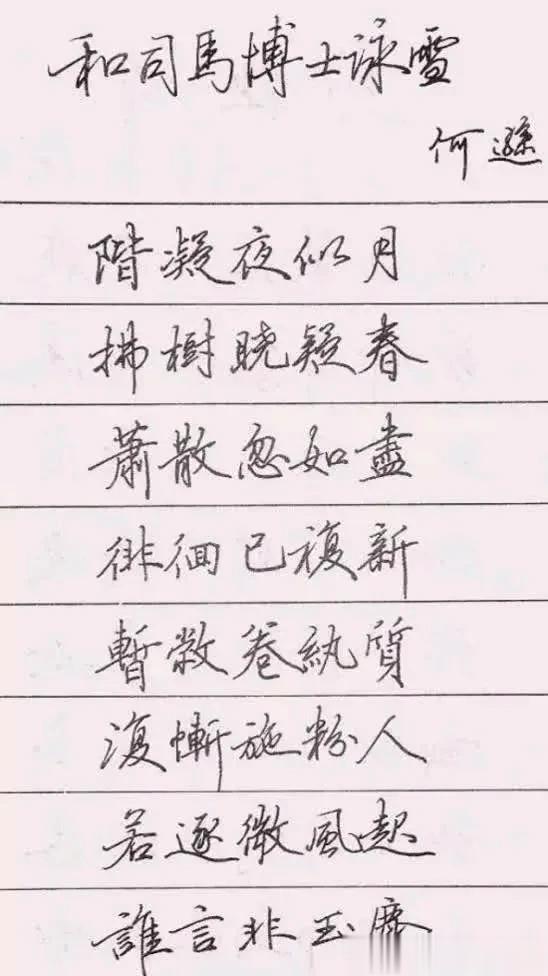 和司馬博士詠雪
何遜
階凝夜似月
拂樹晓疑春
蕭散忽如盡
徘徊已複新
暫敝卷紈質
復慚施粉人
若逐微風起
誰言非玉塵